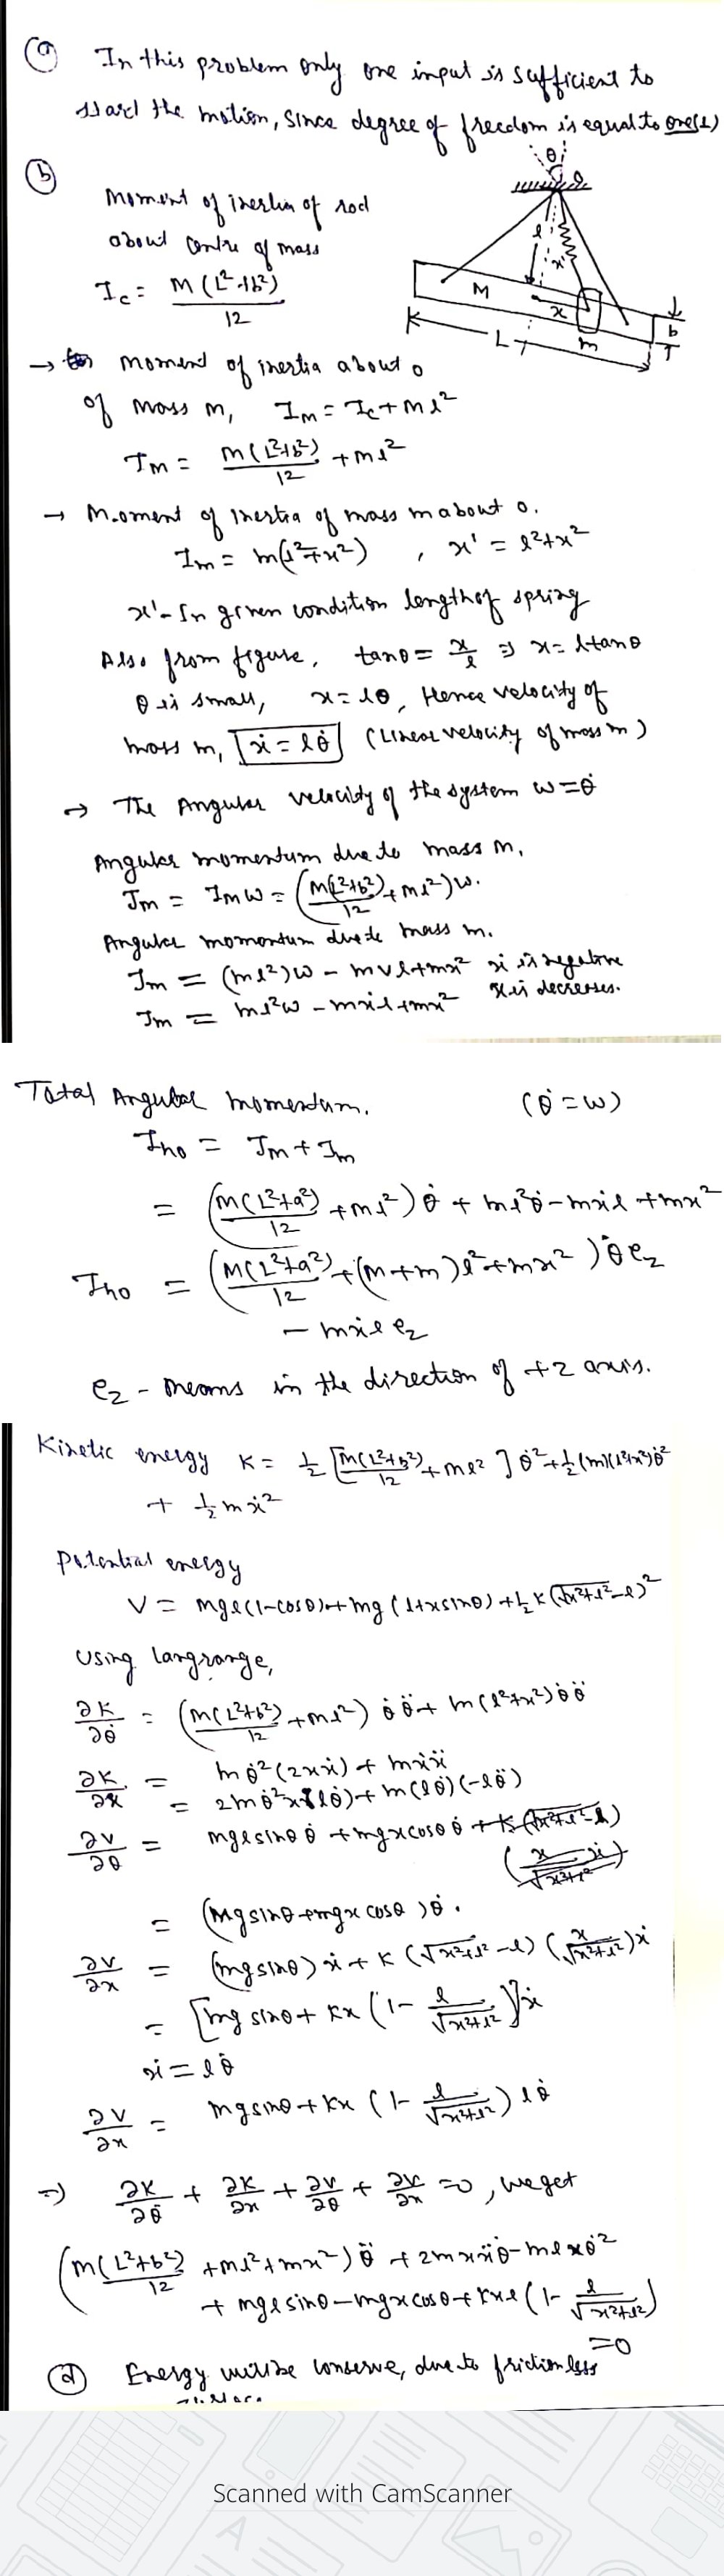 (a) In this problem only one input is sufficient to
start the motion, since degree of freedom is equal to one(1)
(b)
Moment of inertia of rod
about centre of mass
Ic = M(L²+b²)/12
θ
O
l
x'
M
x
m
L
b
→ moment of inertia about o
of mass m, Im = Ic + ml²
Im = M(L²+b²)/12 + ml²
→ Moment of inertia of mass m about o.
Im = m(l²+x²) , x' = l²+x²
x' - In given condition length of spring
Also from figure, tanθ = x/l ⇒ x = l tanθ
θ is small, x = lθ, Hence velocity of
mass m, ẋ = lθ̇ (Linear velocity of mass m)
→ The Angular velocity of the system w = θ̇
Angular momentum due to mass m,
Jm = Imw = (M(L²+b²)/12 + ml²)w.
Angular momentum due to mass m.
Jm = (ml²)w - mvl + mx² ẋ is negative
Jm = ml²w - mẋl + mx² x is decreases.
Total Angular momentum. (θ̇ = w)
Jno = Jm + Jm
= (M(L²+a²)/12 + ml²)θ̇ + ml²θ̇ - mẋl + mx²
Jno = (M(L²+a²)/12 + (M+m)l² + mx²)θ̇ ez
- mẋl ez
ez - means in the direction of +z axis.
Kinetic energy K = 1/2 [M(L²+b²)/12 + ml²]θ̇² + 1/2 (m)(l²+x²)θ̇²
+ 1/2 mẋ²
Potential energy
V = mgl(1-cosθ) + mg(l+xsinθ) + 1/2 K(√x²+l² - l)²
Using langrange,
∂K/∂θ̇ = (M(L²+b²)/12 + ml²)θ̇θ̈ + m(l²+x²)θ̇θ̈
∂K/∂x = mθ̇²(2xẋ) + mẋẍ
= 2mθ̇²x(lθ̇) + m(lθ̇)(-lθ̈)
∂V/∂θ = mglsinθ θ̇ + mgxcosθ θ̇
= (Mgsinθ + mgx cosθ)θ̇.
∂V/∂x = (mgsinθ)ẋ + K(√x²+l² - l)(x/√x²+l²)ẋ
= [mg sinθ + Kx(1 - l/√x²+l²)]ẋ
ẋ = lθ̇
∂V/∂x = mgsinθ + Kx(1 - l/√x²+l²)lθ̇
⇒ ∂K/∂θ̇ + ∂K/∂x + ∂V/∂θ + ∂V/∂x = 0, we get
(M(L²+b²)/12 + ml² + mx²)θ̈ + 2mxẋθ̇ - mlxθ̇²
+ mglsinθ - mgxcosθ + Kxl(1 - l/√x²+l²)
= 0
(d) Energy will be conserve, due to frictionless
Scanned with CamScanner